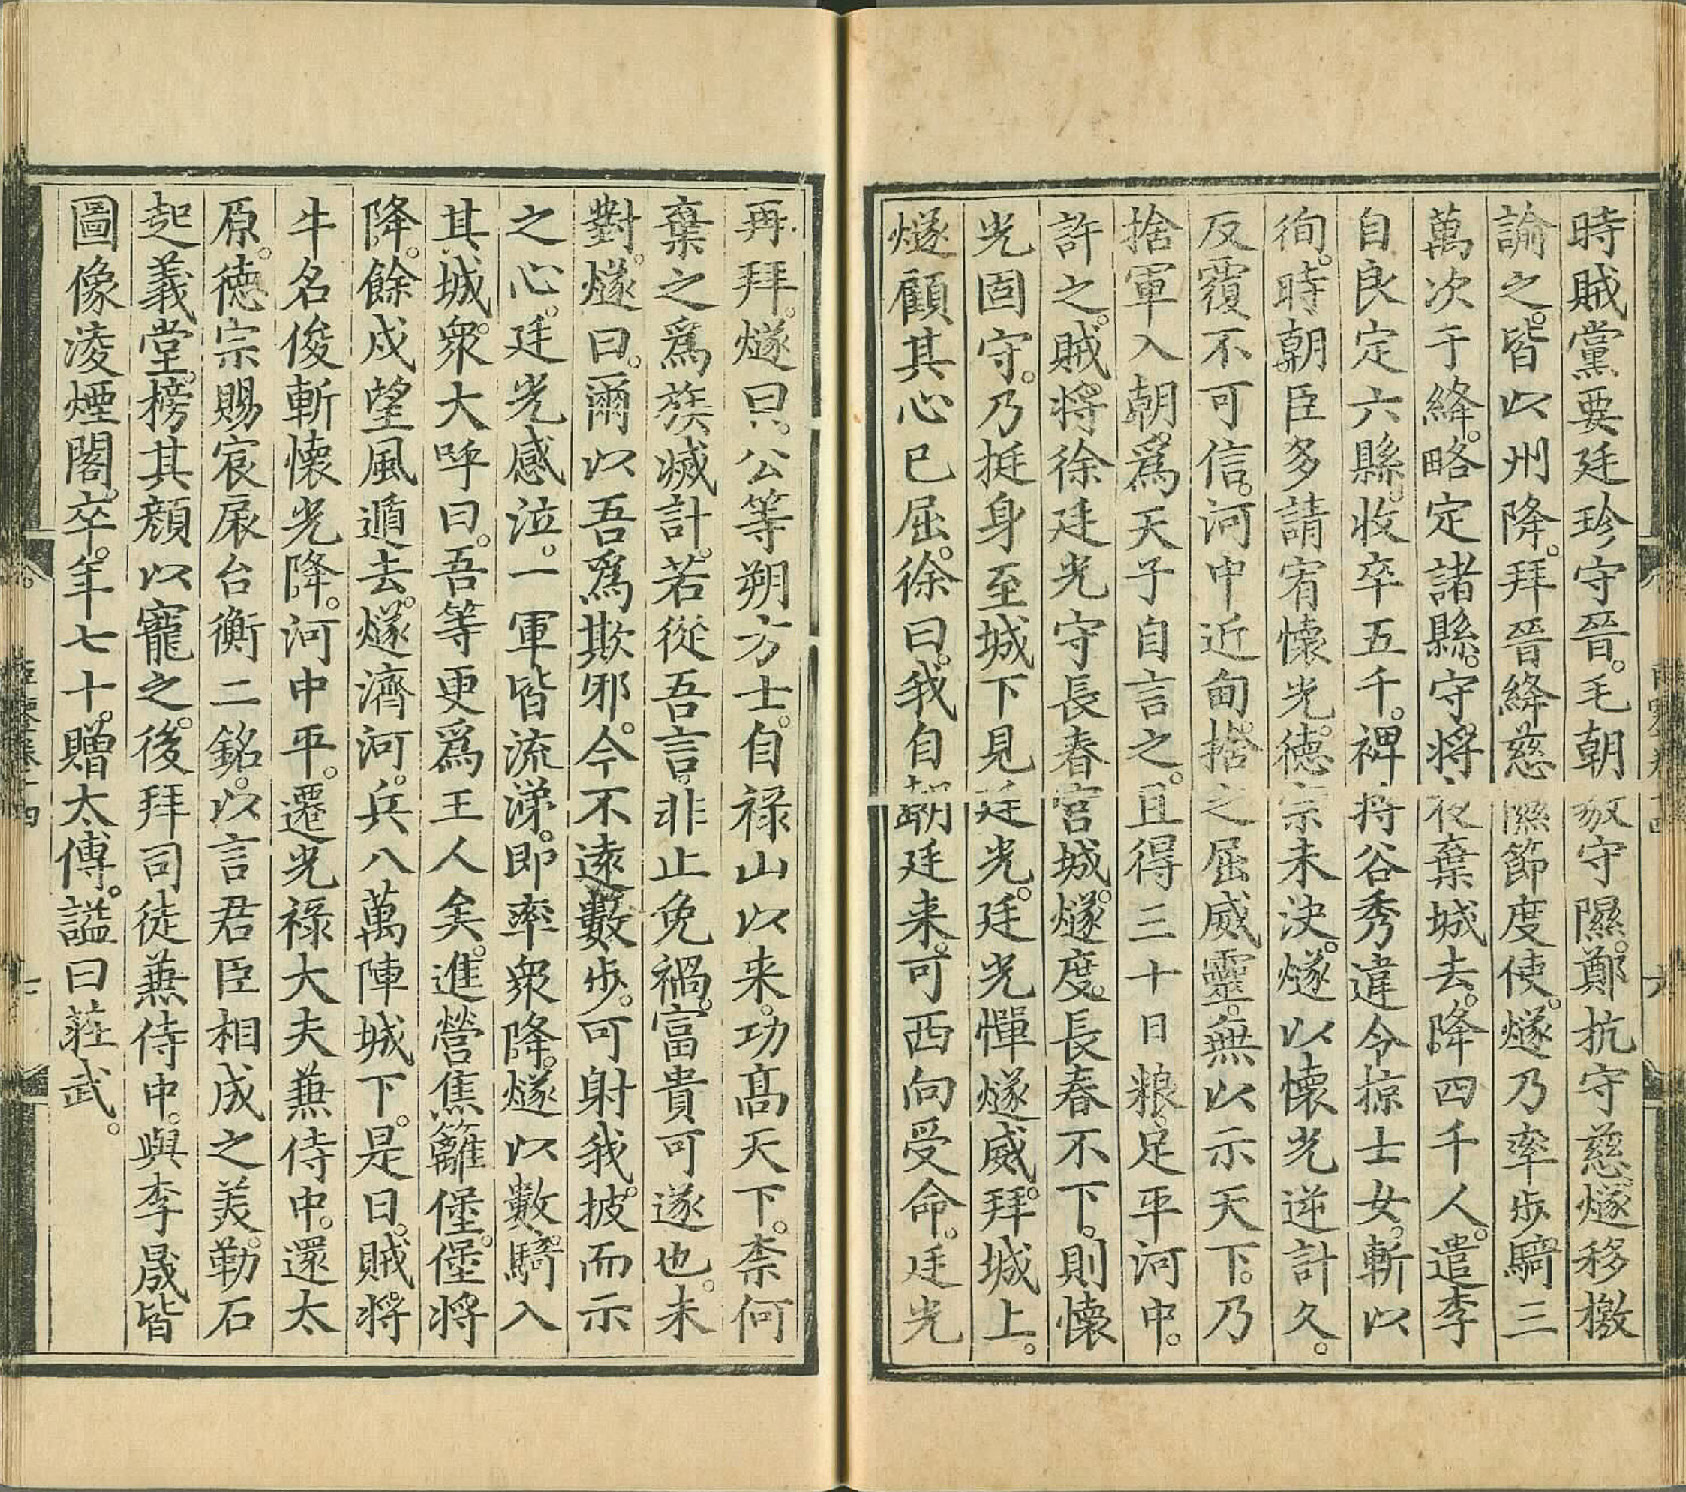 時賊黨要廷珍守晉。毛朝敭守隰。鄭抗守慈。燧移檄
諭之。皆以州降。拜晉絳慈隰節度使。燧乃率步騎三
萬次于絳。略定諸縣。守將夜棄城去。降四千人。遣李
自良定六縣。收卒五千。裨將谷秀違令掠士女。斬以
徇。時朝臣多請宥懷光。德宗未決。燧以懷光逆計久。
反覆不可信。河中近甸。捨之屈威靈。無以示天下。乃
捨軍入朝。爲天子自言之。且得三十日粮。足平河中。
許之。賊將徐廷光守長春宮城。燧度長春不下。則懷
光固守。乃挺身至城下見廷光。廷光憚燧威。拜城上。
燧顧其心已屈。徐曰。我自朝廷来。可西向受命。廷光
再拜。燧曰。公等朔方士。自祿山以来。功髙天下。柰何
棄之爲族滅計。若從吾言。非止免禍。富貴可遂也。未
對。燧曰。爾以吾爲欺邪。今不遠數步。可射我。披而示
之心。廷光感泣。一軍皆流涕。即率衆降。燧以數騎入
其城。衆大呼曰。吾等更爲王人矣。進營焦籬堡。堡將
降。餘戍望風遁去。燧濟河。兵八萬陣城下。是日。賊將
牛名俊斬懷光降。河中平。遷光祿大夫兼侍中。還太
原。德宗賜宸扆台衡二銘。以言君臣相成之美。勒石
起義堂。榜其顏以寵之。後拜司徒兼侍中。與李晟皆
圖像淩煙閣。卒。年七十。贈太傅。謚曰莊武。